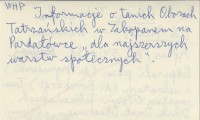 WHP
Informacje o tanich Obozach
Tatrzańskich w Zakopanem na
Pardałówce „dla najszerszych
warstw społecznych".